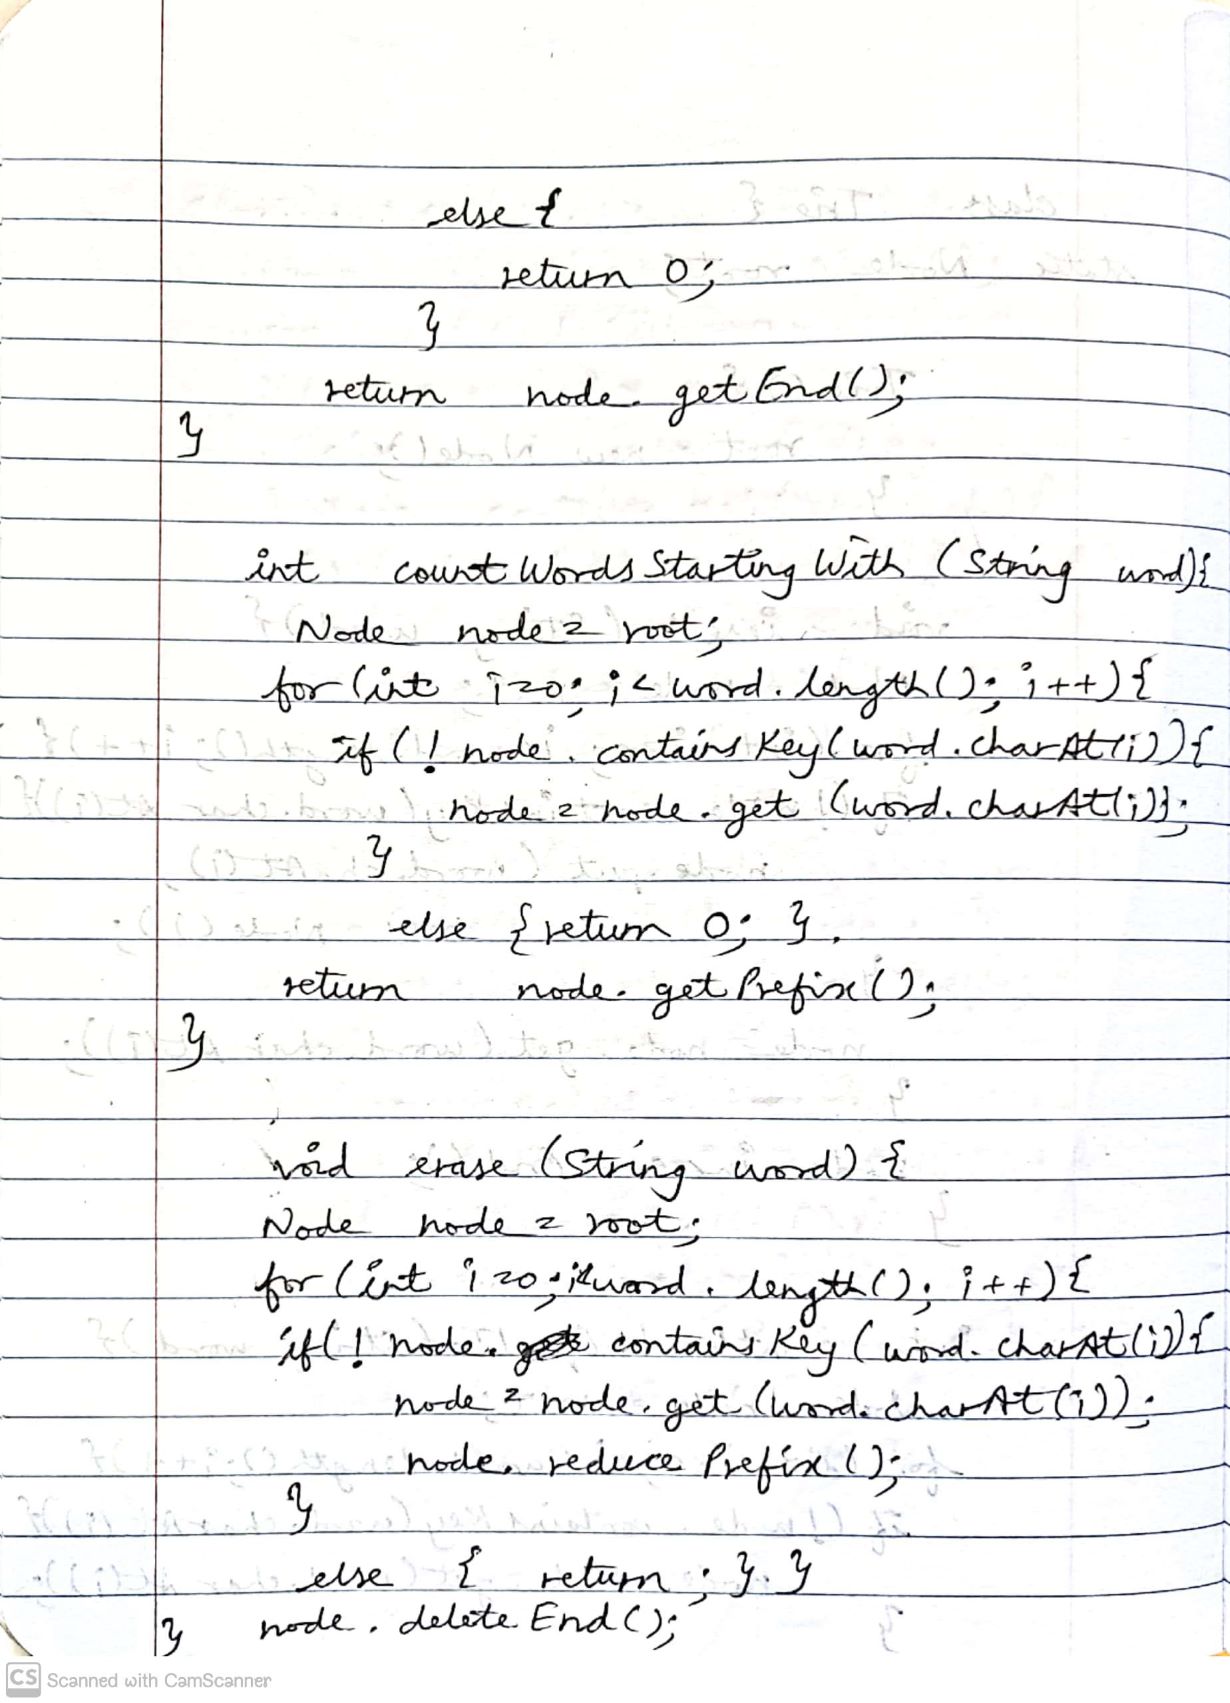 else {
return 0;
}
return node. getEnd();
}
int countWordsStartingWith (String word){
Node node = root;
for (int i=0; i< word. length(); i++){
if (! node. containsKey(word.charAt(i)){
node = node. get (word. charAt(i));
}
else {return 0; }.
return node. getPrefix();
}
void erase (String word) {
Node node = root;
for (int i=0; i<word. length(); i++){
if(! node. containsKey (word. charAt(i)){
node = node. get (word. charAt(i));
node. reducePrefix();
}
else { return ; }. }
} node. deleteEnd();
CS Scanned with CamScanner